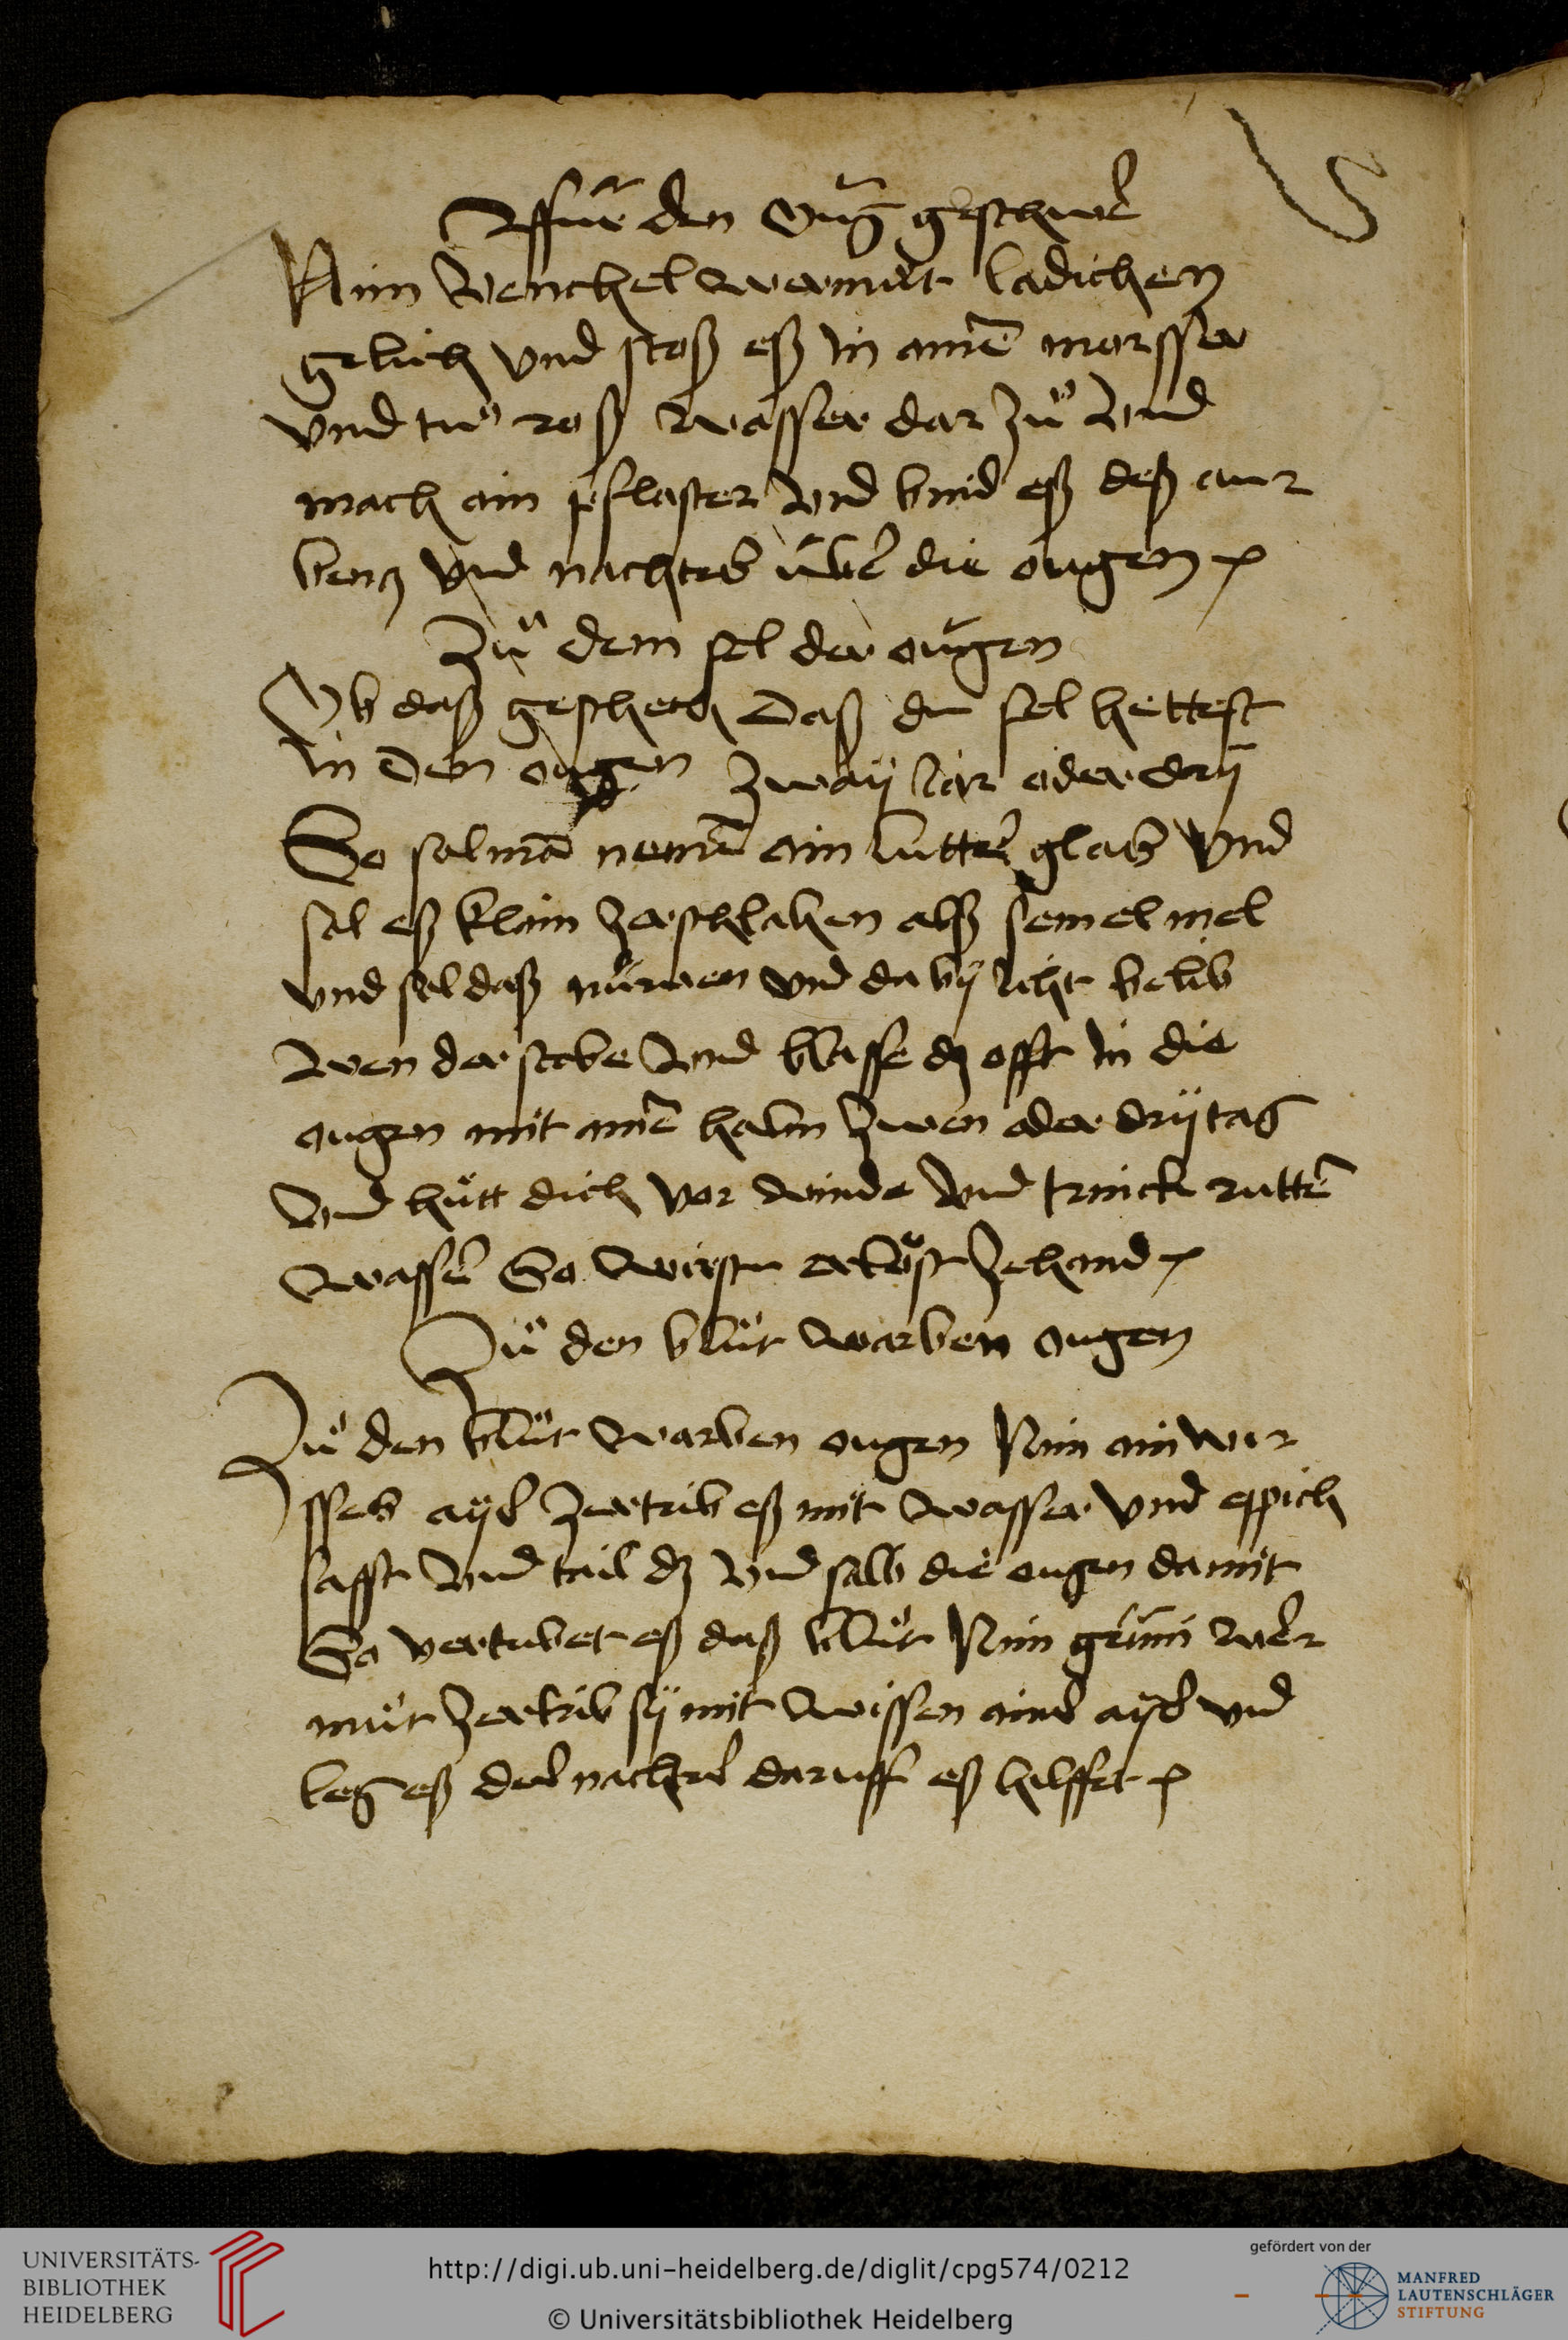 Fur den oug geschwer
Nim venchel wermůt ladichen
gelich vnd stoß eß in ainē morsser
vnd tuͦ roß wasser dar zuͦ vnd
mach ain pflaster vnd bind eß deß
vnd nachtes über die ougen
Zuͦ dem fel der ougen
Ob daß geschech daß du fel hettest
in den ougen zwaÿ jar oder drÿ
So sol mā nemē ain lutter glas vnd
sol eß klain zerschlahen alß semel mel
vnd sol daß vnd da bÿ niht belib
wen der stobe vnd blasse dz offt in die
ougen mit ainē halm zwen oder drÿ tag
vnd huͤtt dich vor winde vnd trinck rutten
wasser So wirstu erlöst zehand
Zuͦ den bluͦt warben ougen
Zuͦ den bluͦt warben ougen Nim ain wi
sses ayer zertrib eß mit wasser vnd eppich
safft vnd tail dz vnd salb die ougen da mit
So vertribet eß daß bluͦt Nim grüni wer
muͦt zertrib sÿ mit wissen ainer ayer vnd
leg eß der nachtes daruff eß hilffet
UNIVERSITÄTS-
BIBLIOTHEK
HEIDELBERG
http://digi.ub.uni-heidelberg.de/diglit/cpg574/0212
© Universitätsbibliothek Heidelberg
gefördert von der
MANFRED
LAUTENSCHLÄGER
STIFTUNG